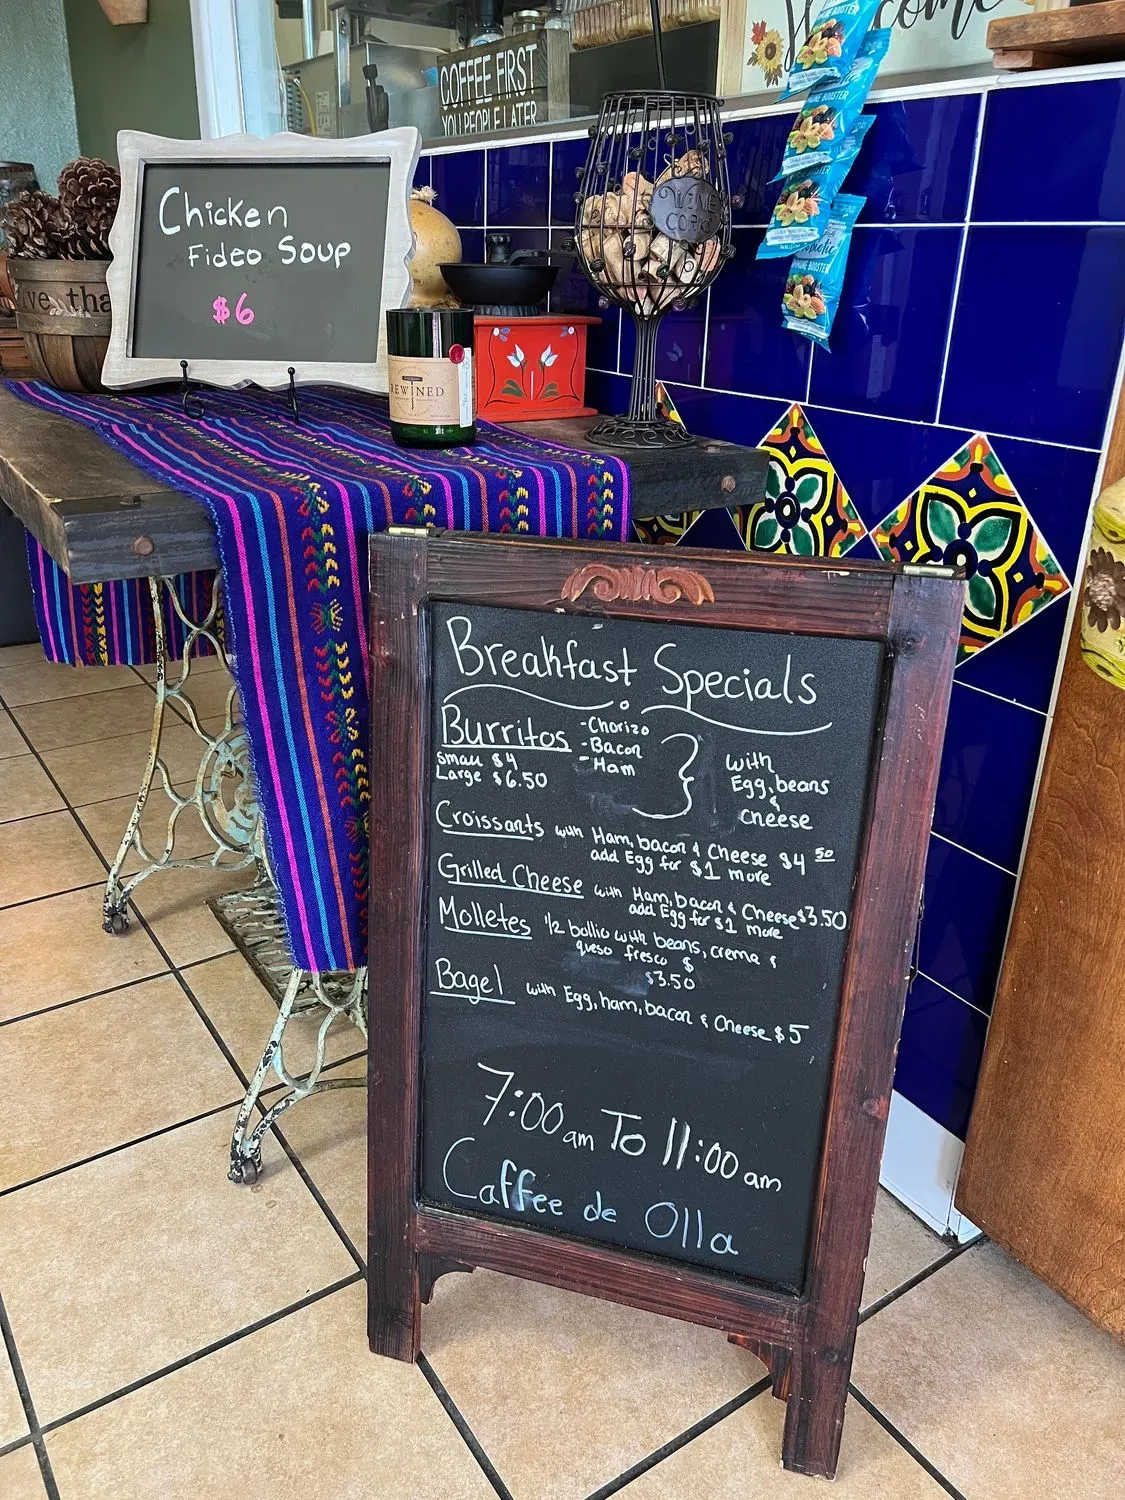 Welcome
COFFEE FIRST
YOU PEOPLE LATER
Chicken
Fideo Soup
$6
WINE
CORKS
BOOSTER
IMMUNE BOOSTER
REWINED
Breakfast Specials
Burritos
small $4
Large $6.50
-Chorizo
-Bacon
-Ham
with
Egg, beans
&
cheese
Croissants with Ham, bacon & Cheese $4 50
add Egg for $1 more
Grilled Cheese with Ham, bacon & Cheese $3.50
add Egg for $1 more
Molletes 1/2 bollio with beans, crema &
queso fresco $
$3.50
Bagel with Egg, ham, bacon & Cheese $5
7:00 am To 11:00 am
Caffee de Olla